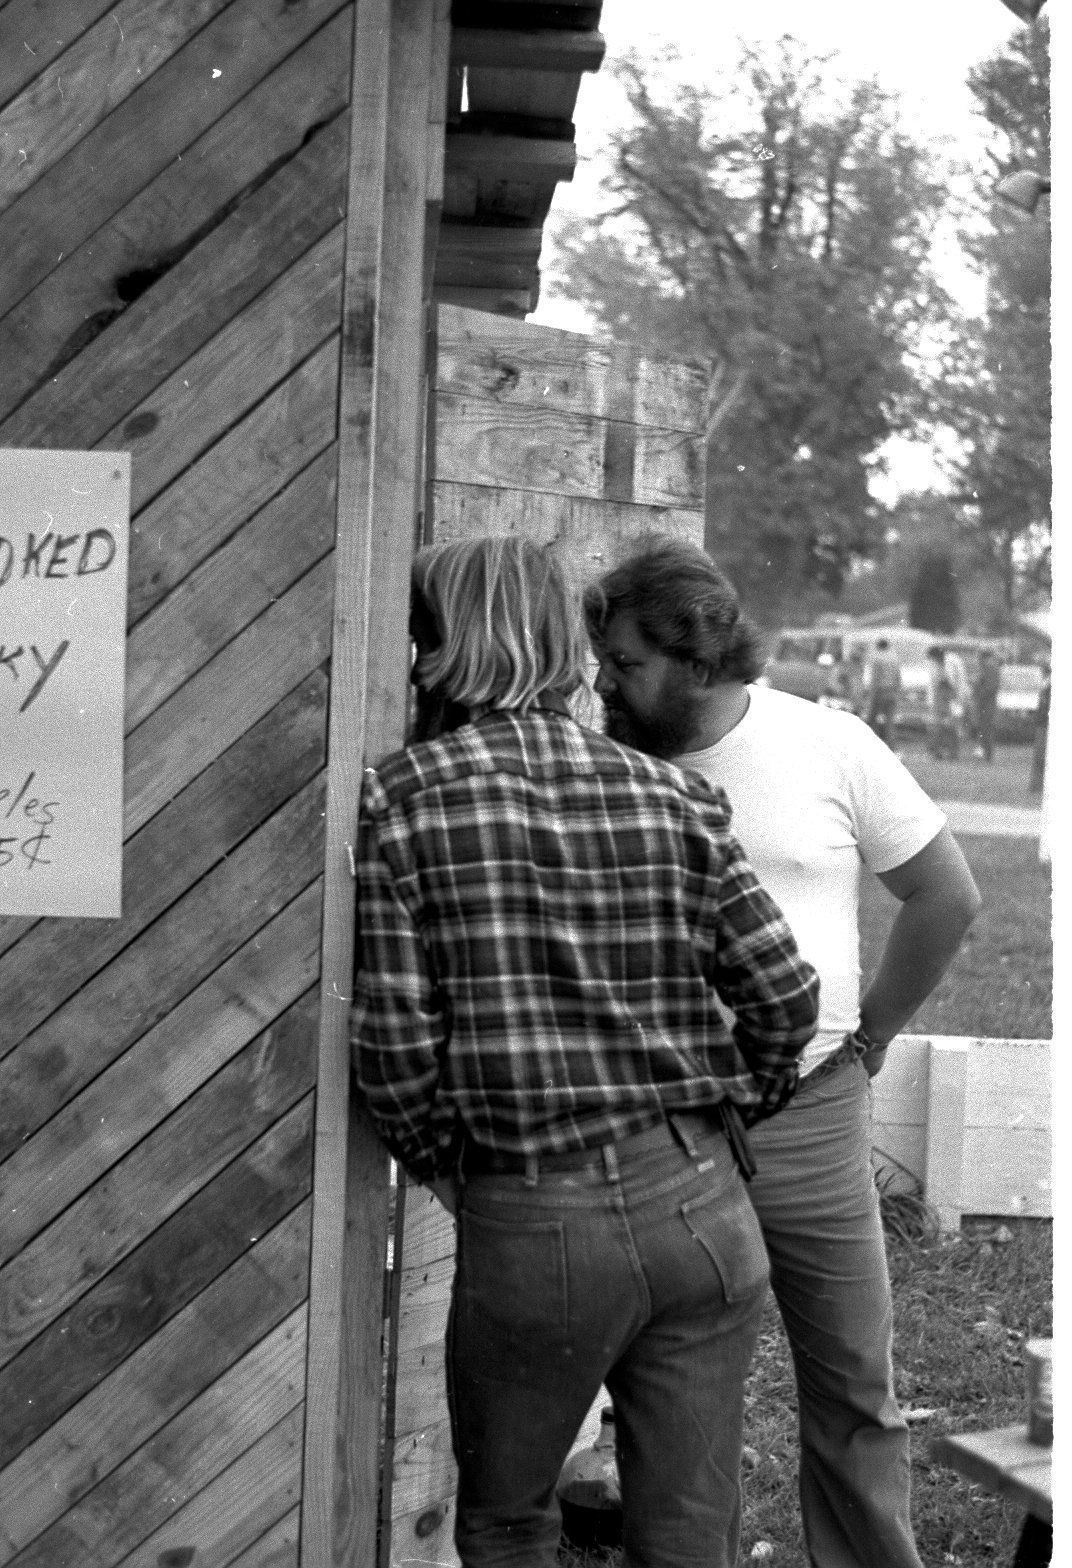 OKED
KY
les
5¢